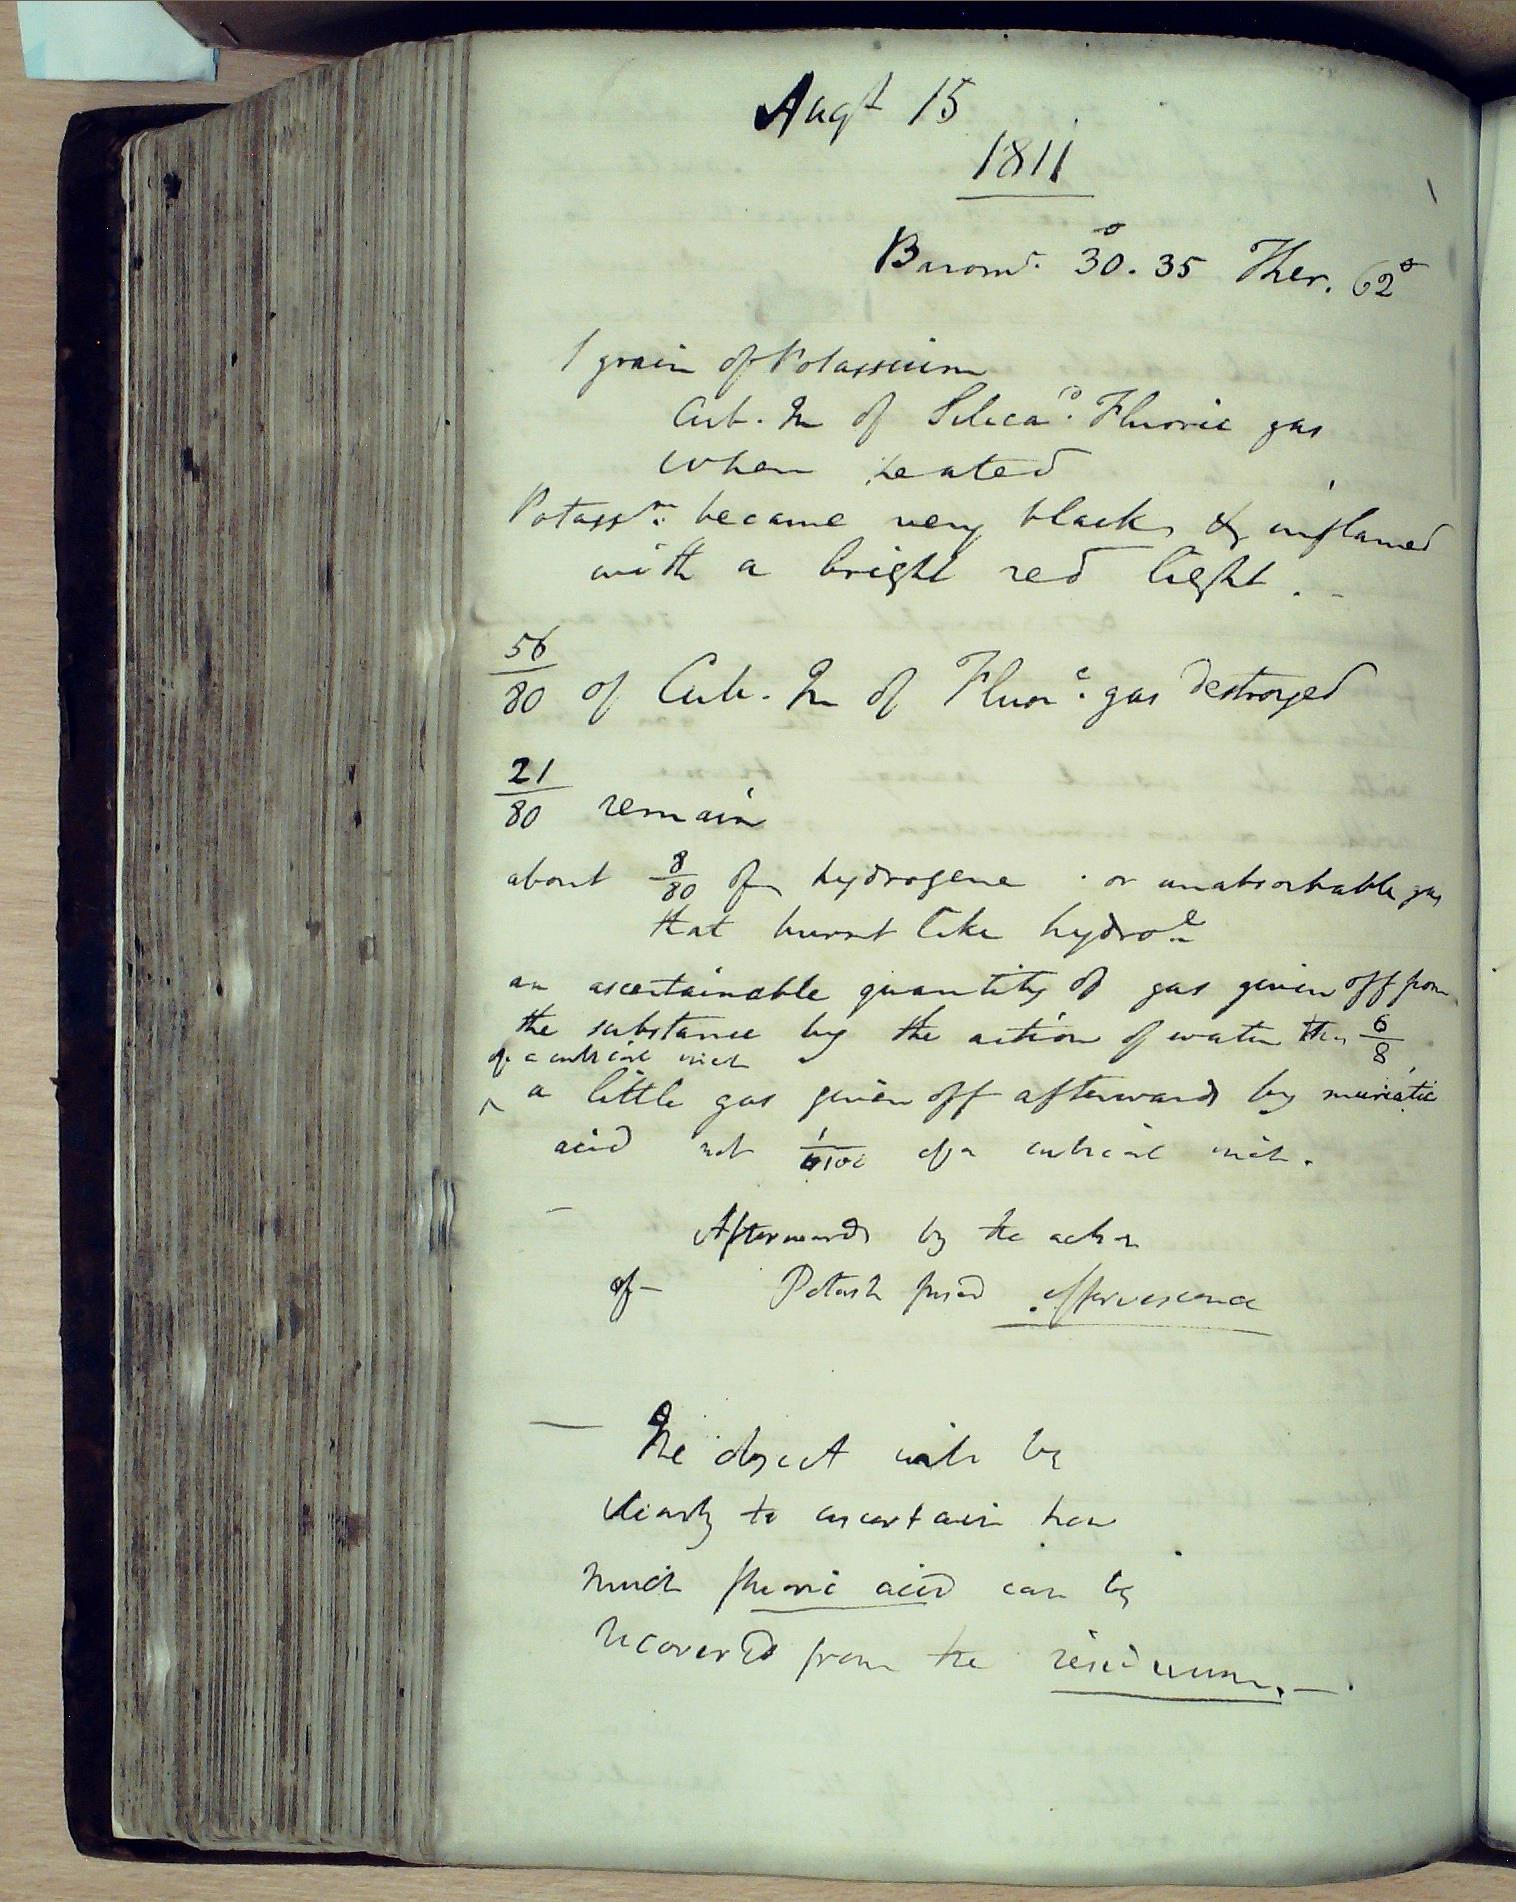 Augt 15
1811
Baromr. 30°.35 Ther. 62°
1 grain of Potassium
Cub. In of Silicad. Fluoric gas
when heated
Potassm. became very black & inflamed
with a bright red light.
56/80 of Cub. In of Fluorc. gas destroyed
21/80 remain
about 8/80 of hydrogene or unabsorbable gas
that burnt like hydroe
an ascertainable quantity of gas given off from
the substance by the action of water 6/8
of a cubical inch
a little gas given off afterwards by muriatic
acid not 1/100 of a cubical inch.
Afterwards by the action
of – Potash fused effervescence
— The object will be
clearly to ascertain how
much fluoric acid can be
recovered from the residuum. –